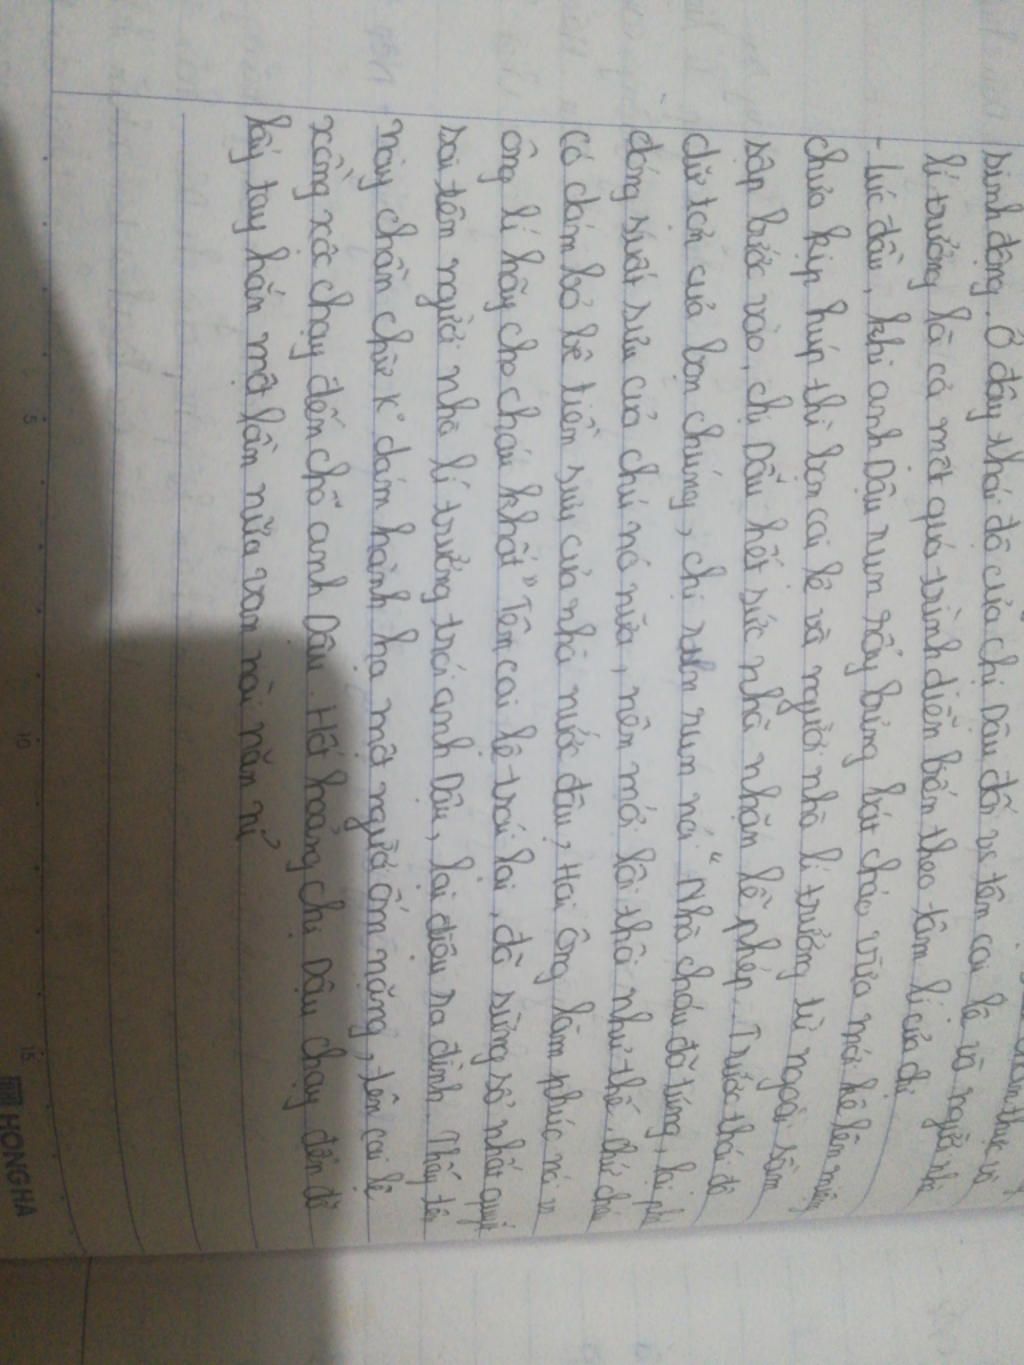 sinh động. Ở đây thái độ của chị Dậu đối vs tên cai lệ và người nhà
lí trưởng là cả một quá trình diễn biến theo tâm lí của chị
- Lúc đầu, khi anh Dậu run rẩy bưng bát cháo vừa mới kề lên miệng
chưa kịp húp thì bọn cai lệ và người nhà lí trưởng từ ngoài sầm
sập bước vào, chị Dậu hết sức nhã nhặn lễ phép. Trước thái độ
dữ tợn của bọn chúng, chị run run nói "Nhà cháu đã túng, lại phải
đóng suất sưu của chú nó nữa, nên mới lôi thôi như thế, chứ cháu
có dám bỏ bê tiền sưu của nhà nước đâu, Hai ông làm phúc nói vs
ông lí hãy cho cháu khất" Tên cai lệ trái lại, đã sừng sộ nhất quyết
sai tên người nhà lí trưởng trói anh Dậu, lại điệu ra đình. Thấy tên
này chần chừ k° dám hành hạ một người ốm nặng, tên cai lệ
xồng xộc chạy đến chỗ anh Dậu. Hốt hoảng chị Dậu chạy đến đỡ
lấy tay hắn một lần nữa van nài năn nỉ
5
10
15
HONG HA